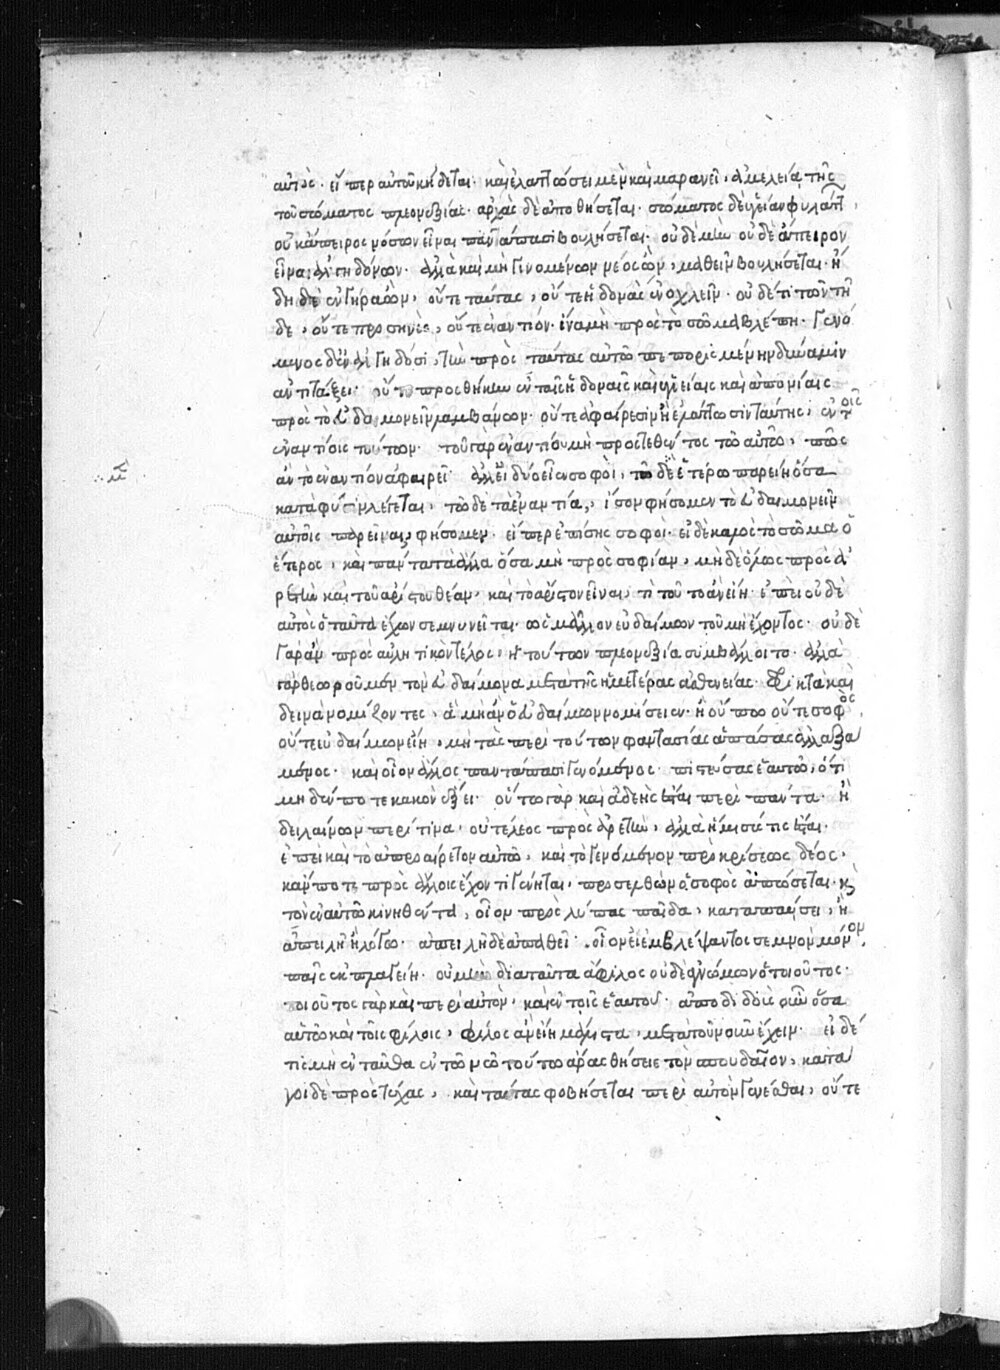 αὐτός· εἴπερ αὐτοῦ κήδεται· καὶ ἐλαττώσει μὲν καὶ μαρανεῖ, ἀμελείᾳ τῆς
τοῦ σώματος πλεονεξίας· ἀρχὰς δὲ ἀποθήσεται· σώματος δὲ ὑγίειαν φυλάττ
οὐκ ἄπειρος νόσων εἶναι παντάπασι βουλήσεται· οὐδὲ μὴν οὐδὲ ἄπειρον
εἶναι ἀλγηδόνων· ἀλλὰ καὶ μὴ γινομένων νέος ὢν, μαθεῖν βουλήσεται· ἤ
δη δὲ ἐν γήρᾳ ὢν, οὔτε ταύτας, οὔτε ἡδονὰς ἐνοχλεῖν· οὐδέ τι τῶν τῇ
δε, οὔτε προσηνὲς, οὔτε ἐναντίον· ἵνα μὴ πρὸς τὸ σῶμα βλέπῃ· γενό
μενος δ' ἐν ἀλγηδόσι, τὴν πρὸς ταύτας αὐτῷ πεπορισμένην δύναμιν
ἀντιτάξει· οὔτε προσθήκην ἐν ταῖς ἡδοναῖς καὶ ὑγιείαις καὶ ἀπονίαις
πρὸς τὸ εὐδαιμονεῖν λαμβάνων· οὔτε ἀφαίρεσιν ἢ ἐλάττωσιν ταύτης, ἐν τοῖς
ἐναντίοις τούτων· τοῦ γὰρ ἐναντίου μὴ προστεθέντος τῷ αὐτῷ, πῶς
ἂν τὸ ἐναντίον ἀφαιρεῖ· ἀλλ' εἰ δύο εἶεν σοφοὶ, τῷ δὲ ἑτέρῳ παρείη ὅσα
κατὰ φύσιν λέγεται, τῷ δὲ τὰ ἐναντία, ἴσον φήσομεν τὸ εὐδαιμονεῖν
αὐτοῖς παρεῖναι; φήσομεν· εἴπερ ἐπίσης σοφοί· εἰ δὲ καλὸς τὸ σῶμα ὁ
ἕτερος, καὶ πάντα τὰ ἄλλα ὅσα μὴ πρὸς σοφίαν, μηδὲ ὅλως πρὸς ἀ
ρετὴν καὶ τοῦ ἀρίστου θέαν, καὶ τὸ ἄριστον εἶναι, τί τοῦτο ἂν εἴη· ἐπεὶ οὐδὲ
αὐτὸς ὁ ταῦτα ἔχων σεμνυνεῖται· ὡς μᾶλλον εὐδαίμων τοῦ μὴ ἔχοντος· οὐδὲ
γὰρ ἂν πρὸς αὐλητικὸν τέλος, ἡ τούτων πλεονεξία συμβάλλοιτο· ἀλλὰ
γὰρ θεωροῦμεν τὸν εὐδαίμονα μετὰ τῆς ἡμετέρας ἀσθενείας· φρικτὰ καὶ
δεινὰ νομίζοντες, ἃ μὴ ἂν ὁ εὐδαίμων νομίσειεν· ἢ οὔπω οὔτε σοφὸς,
οὔτε εὐδαίμων εἴη, μὴ τὰς περὶ τούτων φαντασίας ἁπάσας ἀλλαξά
μενος· καὶ οἷον ἄλλος παντάπασι γενόμενος· πιστεύσας ἑαυτῷ, ὅτι
μηδέν ποτε κακὸν ἕξει· οὕτω γὰρ καὶ ἀδεὴς ἔσται περὶ πάντα· ἢ
δειλαίνων περί τινα, οὐ τέλεος πρὸς ἀρετὴν, ἀλλὰ ἥμισύς τις ἔσται·
ἐπεὶ καὶ τὸ ἀπροαίρετον αὐτῷ, καὶ τὸ γενόμενον πρὸ κρίσεως δέος,
κἄν ποτε πρὸς ἄλλοις ἔχοντι γένηται, προσελθὼν ὁ σοφὸς ἀπώσεται· καὶ
τὸν ἐν αὐτῷ κινηθέντα, οἷον πρὸς λύπας παῖδα, καταπαύσει, ἢ
ἀπειλῇ ἢ λόγῳ· ἀπειλῇ δὲ ἀπαθεῖ· οἷον εἰ ἐμβλέψαντος σεμνὸν μόνον,
παῖς ἐκπλαγείη· οὐ μὴν διὰ ταῦτα ἄφιλος οὐδὲ ἀγνώμων ὁ τοιοῦτος·
τοιοῦτος γὰρ καὶ περὶ αὑτὸν, καὶ ἐν τοῖς ἑαυτοῦ· ἀποδιδοὺς οὖν ὅσα
αὑτῷ καὶ τοῖς φίλοις, φίλος ἂν εἴη μάλιστα, μετὰ τοῦ νοῦν ἔχειν· εἰ δέ
τις μὴ ἐνταῦθα ἐν τῷ νῷ τούτῳ ἄρας θήσειε τὸν σπουδαῖον, κατά
γοι δὲ πρὸς τύχας, καὶ ταύτας φοβήσεται περὶ αὐτὸν γενέσθαι, οὔτε